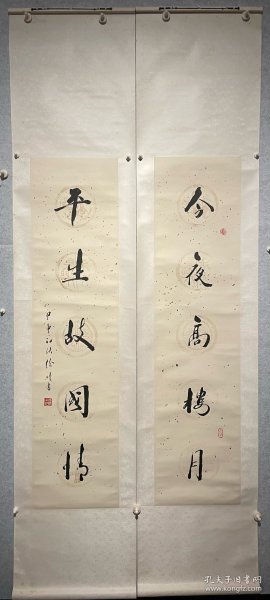 今夜高楼月
平生故國情
孔夫子旧书网
www.kongfz.com